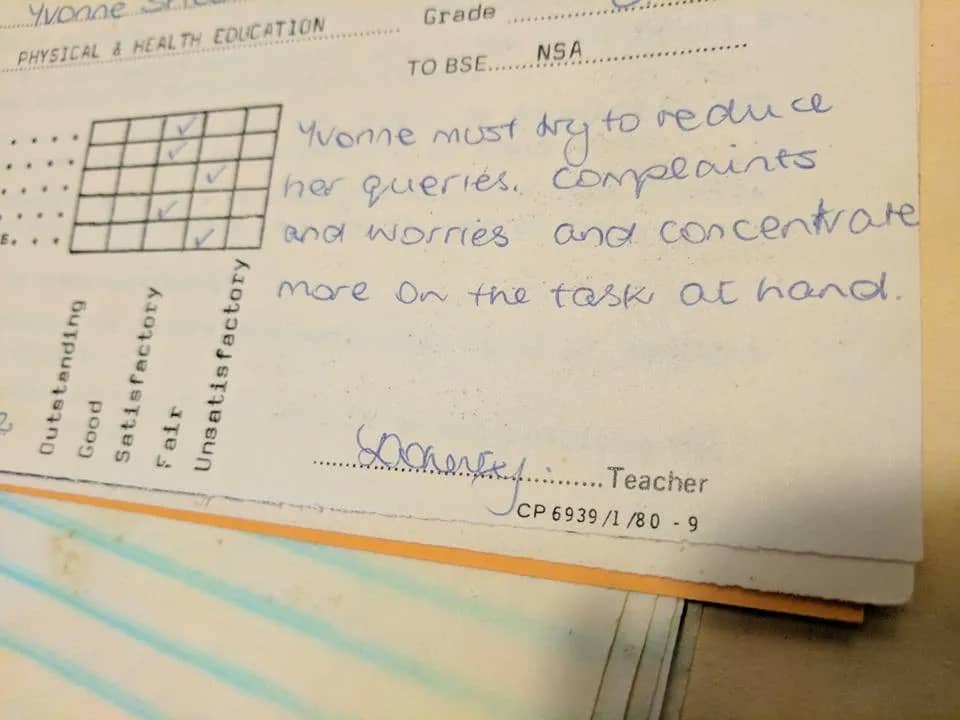 Yvonne
Grade
PHYSICAL & HEALTH EDUCATION
TO BSE...... NSA
Yvonne must try to reduce
her queries. complaints
and worries and concentrate
more on the task at hand.
Outstanding
Good
Satisfactory
Fair
Unsatisfactory
Teacher
CP 6939/1/80 - 9